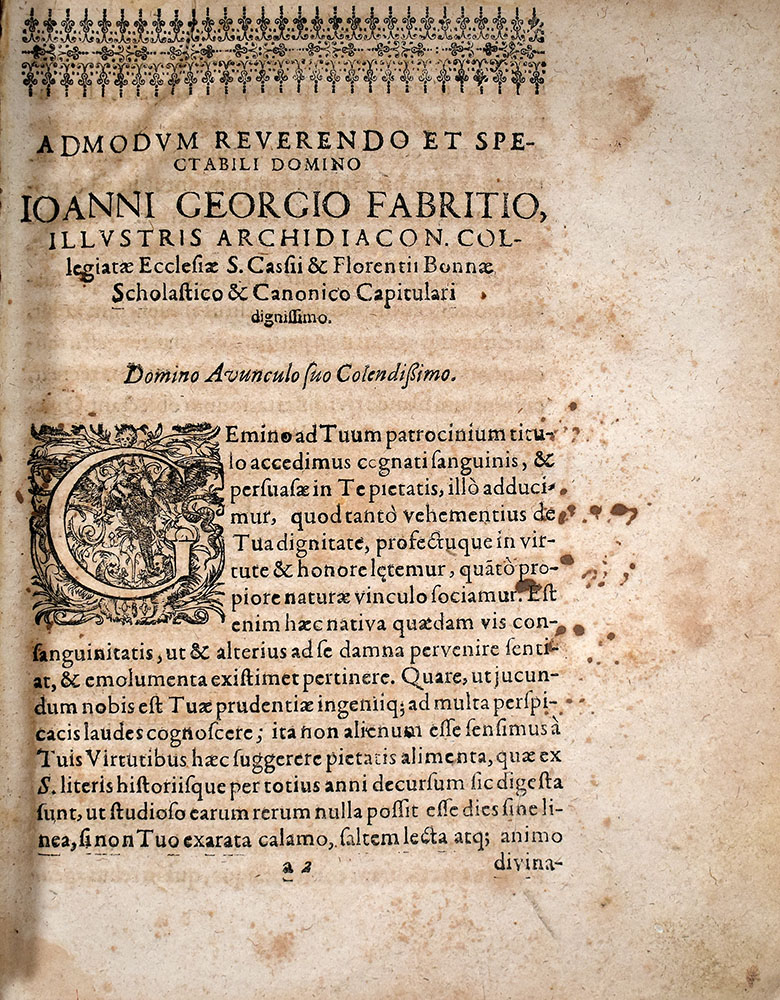 ADMODVM REVERENDO ET SPE-
CTABILI DOMINO
IOANNI GEORGIO FABRITIO,
ILLVSTRIS ARCHIDIACON. COL-
legiatæ Ecclesiæ S. Cassii & Florentii Bonnæ
Scholaſtico & Canonico Capitulari
digniſſimo.
Domino Avunculo ſuo Colendiſſimo.
GEmino ad Tuum patrocinium titu-
lo accedimus cognati ſanguinis, &
perſuaſæ in Te pietatis, illò adduci-
mur, quod tantò vehementius de
Tua dignitate, profectuque in vir-
tute & honore lętemur, quātò pro-
piore naturæ vinculo ſociamur. Eſt
enim hæc nativa quædam vis con-
ſanguinitatis, ut & alterius ad ſe damna pervenire ſenti-
at, & emolumenta exiſtimet pertinere. Quare, ut jucun-
dum nobis eſt Tuæ prudentiæ ingeniiq; ad multa perſpi-
cacis laudes cognoſcere; ita non alienum eſſe ſenſimus à
Tuis Virtutibus hæc ſuggerere pietatis alimenta, quæ ex
S. literis hiſtoriiſque per totius anni decurſum ſic digeſta
ſunt, ut ſtudioſo earum rerum nulla poſſit eſſe dies ſine li-
nea, ſi non Tuo exarata calamo, ſaltem lecta atq; animo
a 2 divina-